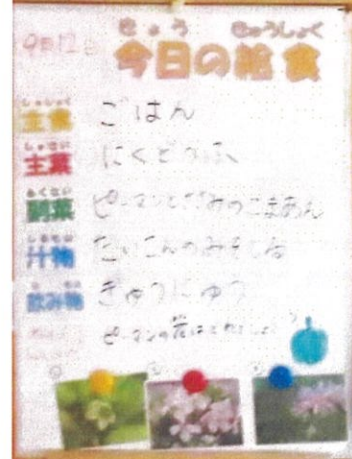 9月12日
きょう きゅうしょく
今日の給食
しゅしょく
主食 ごはん
しゅさい
主菜 にくどうふ
ふくさい
副菜 ピーマンと
しるもの
汁物 だいこんのみそしる
飲み物 ぎゅうにゅう
ピーマンの花はどれでしょう